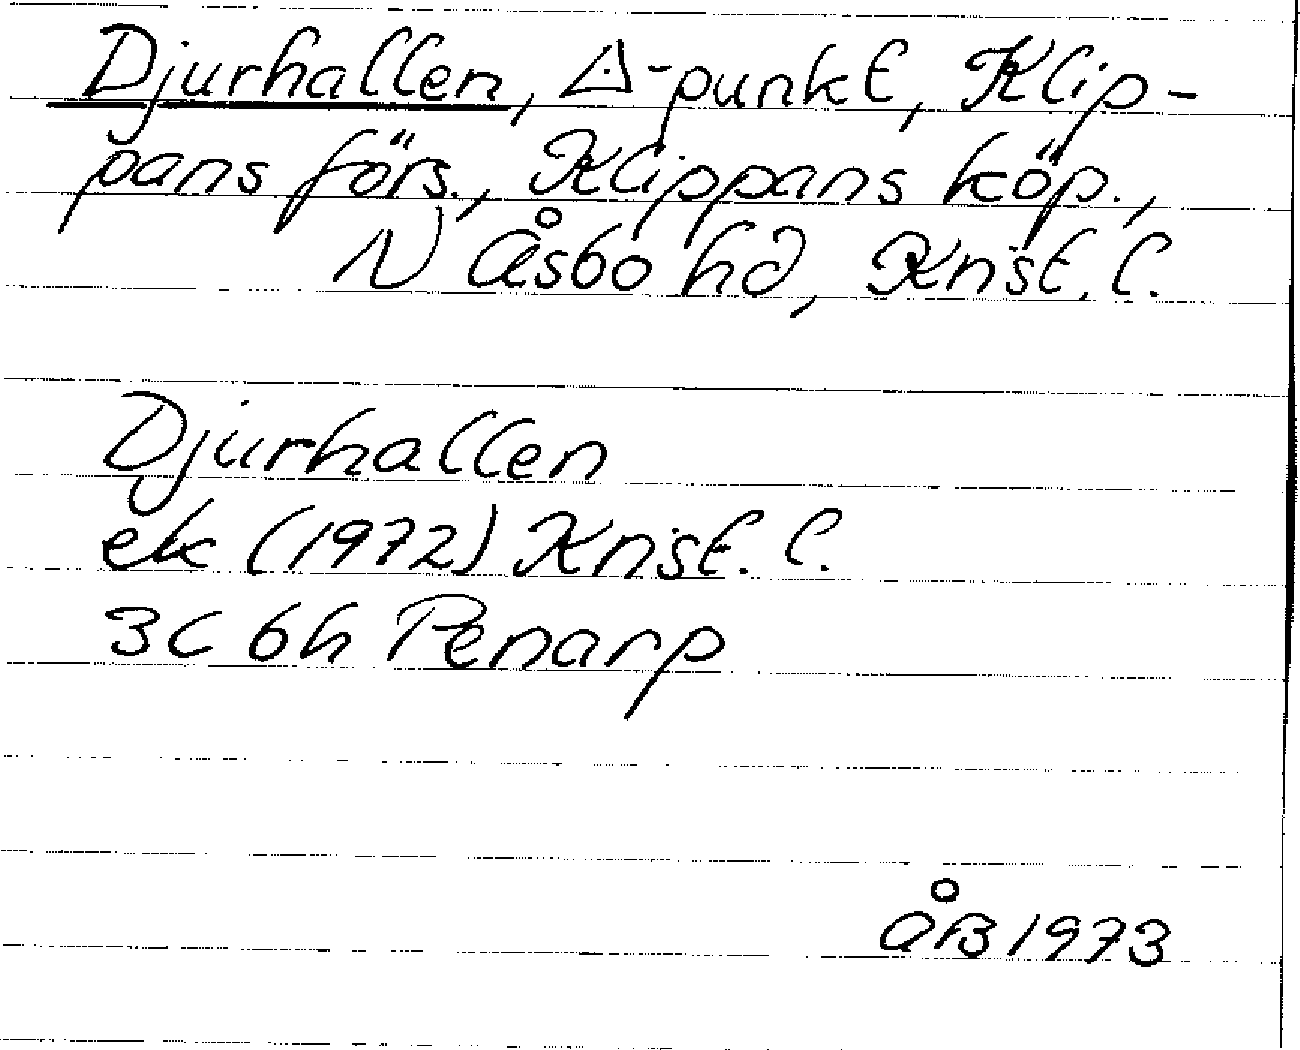 Djurhallen, △-punkt, Klip-
pans förs., Klippans köp.,
N Åsbo hd, Krist. l.
Djurhallen
ek (1972) Krist. l.
3C 6h Penarp
ÅB 1973